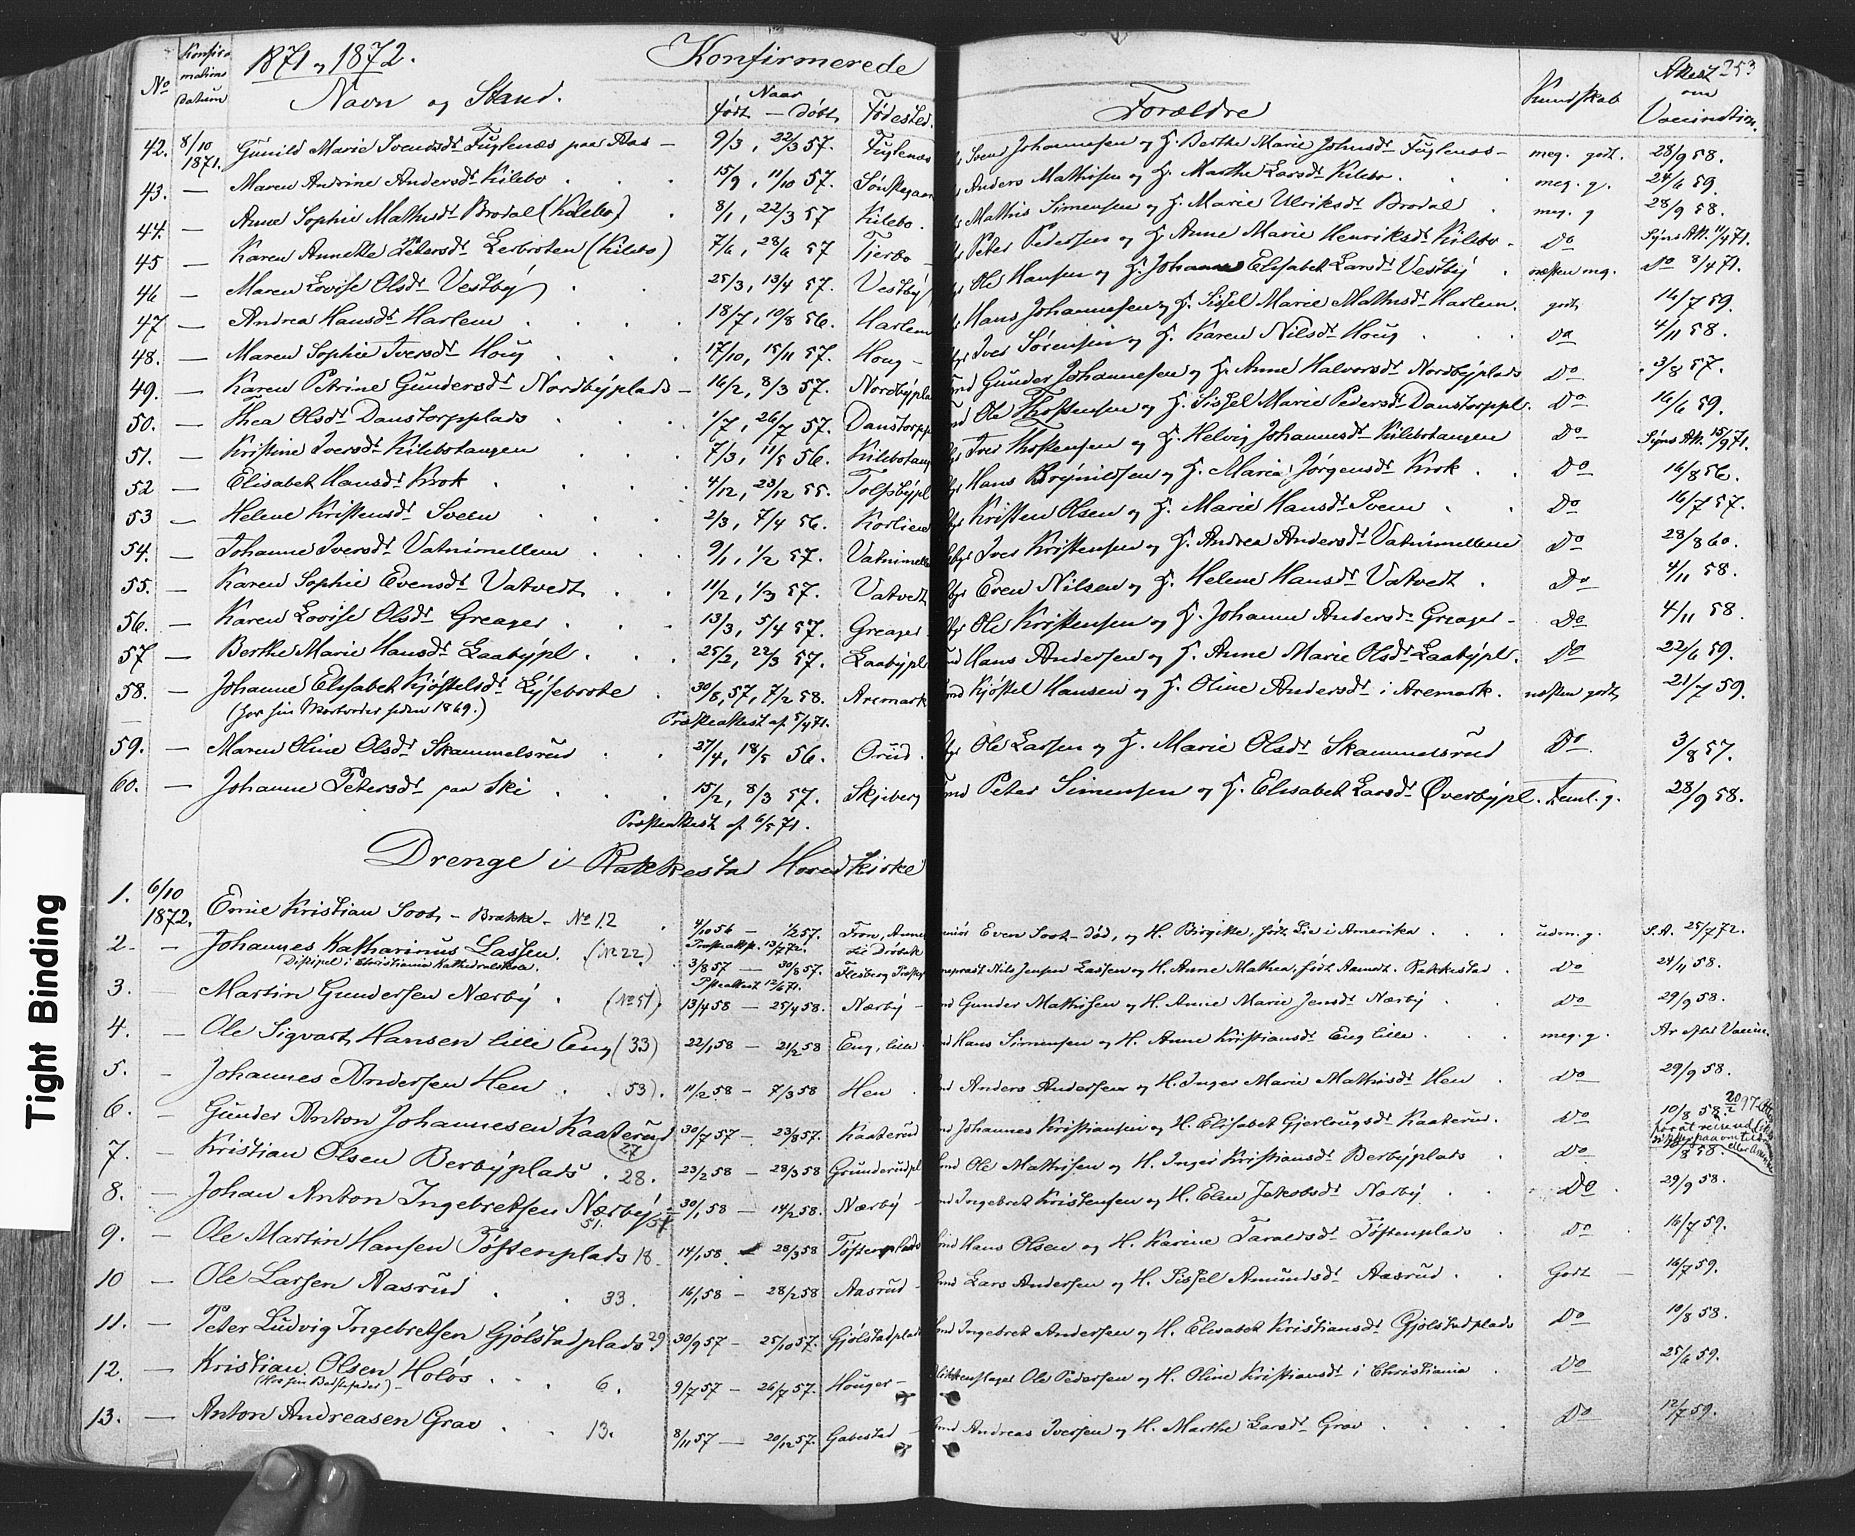 1871 og 1872. Konfirmerede 253
No Konfirmations datum Navn og Stand. Naar født — døbt Fødested. Forældre Kundskab Attest om Vaccination.
42. 8/10 1871. Gunild Marie Svendsdt Fuglenæs paa Aas — 9/3, 22/3 57. Fuglenæs Svend Johannesen og H. Berthe Marie Johnsdt Fuglenæs — meg. godt. 28/9 58.
43. — Maren Andrine Andersdt Kilebo 15/9, 11/10 57. Anders Mathisen og H. Marthe Larsdt Kilebo meg. g. 24/6 59.
44. — Anne Sophie Mathisdt Brodal (Kilebo) 8/1, 22/3 57 Kilebo. Mathis Simensen og H. Marie Ulriksdt Brodal meg. g 28/9 58.
45 — Karen Annette Petersdt Lerbroten (Kilebo) 7/6, 28/6 57 Tjerbo — Peter Petersen og H. Anne Marie Henriksdt Kilebo. Do Syns Att. 11/4 71.
46 — Maren Lovise Olsdt Vestby 25/3, 13/4 57. Vestby Ole Hansen og H. Johanne Elisabet Larsdt Vestby næsten mg. Do 8/4 71.
47 — Andrea Hansdt Harlem 18/7, 10/8 56. Harlem Hans Johannesen og H. Sissel Marie Mathisdt Harlem. godt. 14/7 59.
48. — Maren Sophie Iversdt Houg 17/10, 15/11 57. Houg — Iver Sørensen og H. Karen Nilsdt Houg Do 4/11 58.
49. — Karen Petrine Gundersdt Nordbyplads — 16/2, 8/3 57. Nordbypla Gunder Johannesen og H. Anne Halvorsdt Nordbyplads Do 3/8 57.
50. — Thea Olsdt Danstorpplads 1/7, 26/7 57. Danstorpp Ole Thostensen og H. Sissel Marie Pedersdt Danstorppl. Do 16/6 59.
51. — Kristine Iversdt Kilebotangen 7/3, 11/5 56. Kilebotang Iver Thostensen og H. Helvig Johannesdt Kilebotangen Do Syns Att. 15/9 71.
52 — Elisabet Hansdt Krok 4/12, 23/12 55. Tolfsbypl Hans Brynildsen og H. Maria Jørgensdt Krok Do 16/8 56.
53 — Helene Kristensdt Sveen 2/3, 7/4 56. Korlien Kristen Olsen og H. Marie Hansdt Sveen Do 16/7 57.
54. — Johanne Iversdt Vatnimellem 9/1, 1/2 57. Vatnimell Iver Kristensen og H. Andrea Andersdt Vatnimellem Do 28/8 60.
55. — Karen Sophie Evensdt Vatvedt 11/2, 1/3 57. Vatvedt Even Nilsen og H. Helene Hansdt Vatvedt Do 4/11 58.
56. — Karen Lovise Olsdt Greager 13/3, 5/4 57. Greager Ole Kristensen og H. Johanne Andersdt Greager — Do 4/11 58
57 — Berthe Marie Hansdt Laabypl. 25/2, 22/3 57. Laabypl Hans Andersen og H. Anne Marie Olsdt Laabypl. Do 22/6 59.
58. — Johanne Elisabet Kjøstelsdt Lysebrote 30/8 57, 7/2 58. Aremark Kjøstel Hansen og H. Oline Andersdt i Aremark. næsten godt, 21/7 59.
(hos sin Morbroder siden 1869.) Præsteattest af 5/4 71.
59. — Maren Oline Olsdt Skammelsrud 27/4, 18/5 56. Orud. Ole Larsen og H. Marie Olsdt Skammelsrud Do. 3/8 57.
60. — Johanne Petersdt paa Ski 15/2, 8/3 57. Skjeberg Peter Simensen og H. Elisabet Larsdt Øverbypl. Teml. g. 28/9 58.
Præsteattest af 6/5 71.
Drenge i Rakkestad Hovedkirke
1. 6/10 1872. Ernie Kristian Soot — Brække — No 12 4/10 56 — 1/2 57. Even Soot — død, og H. Birgitte, født Lie i Amerika udm. g. S.A. 25/7 72.
2. — Johannes Katharinus Lassen. (No 22) 3/8 57 — 30/8 57. Nils Jensen Lassen og H. Anne Mathea, født Aamodt. Rakkestad. Do 24/11 58.
Discipel i Christiania Kathedralskole.
3. — Martin Gundersen Nærby (No 51) 13/4 58 — 25/4 58. Nærby — Gunder Mathisen og H. Anne Marie Jensdt Nærby Do 29/9 58.
4. — Ole Sigvart Hansen lille Eng (33) 22/1 58 — 21/2 58 Eng, lille Hans Simensen og H. Anne Kristiansdt Eng lille meg. g.
5. — Johannes Andersen Hen (53). 11/2 58 — 7/3 58 Hen Anders Andersen og H. Inger Marie Mathisdt Hen Do 29/9 58.
6. — Gunder Anton Johannesen Kaaterud (27) 30/7 57 — 23/8 57. Kaaterud Johannes Kristiansen og H. Elisabet Gjerlaugsdt Kaaterud. Do 10/8 58.
7. — Kristian Olsen Berbyplads 28. 23/2 58 — 28/3 58 Grunderudpl Ole Mathisen og H. Inger Kristiansdt Berbyplads Do
8. — Johan Anton Ingebretsen Nærby 51. 30/1 58 — 14/2 58. Nærby — Ingebret Kristensen og H. Elen Jakobsdt Nærby Do 29/9 58.
9. — Ole Martin Hansen Tøstenplads 18. 14/1 58 — 28/3 58 Tøstenplads Hans Olsen og H. Karine Taraldsdt Tøstenplads Do 16/7 59.
10 — Ole Larsen Aasrud 33. 16/1 58 — 28/2 58 Aasrud — Lars Andersen og H. Sissel Amundsdt Aasrud. Godt — 16/7 59.
11. — Peter Ludvig Ingebretsen Gjølstadplads 29 30/9 57 — 25/10 57. Gjølstadplads Ingebret Andersen og H. Elisabet Kristiansdt Gjølstadplads Do 10/8 58.
12. — Kristian Olsen Holøs 6. 9/7 57 — 26/7 57. Houger — Ole Pedersen og H. Oline Kristiansdt i Christiania Do 25/6 59.
(Hos sin Bedstefader) —
13. — Anton Andreasen Grav 13. 8/11 57 — 20/12 57. Gabestad — Andreas Iversen og H. Marthe Larsdt Grav Do 12/7 59.
Tight Binding